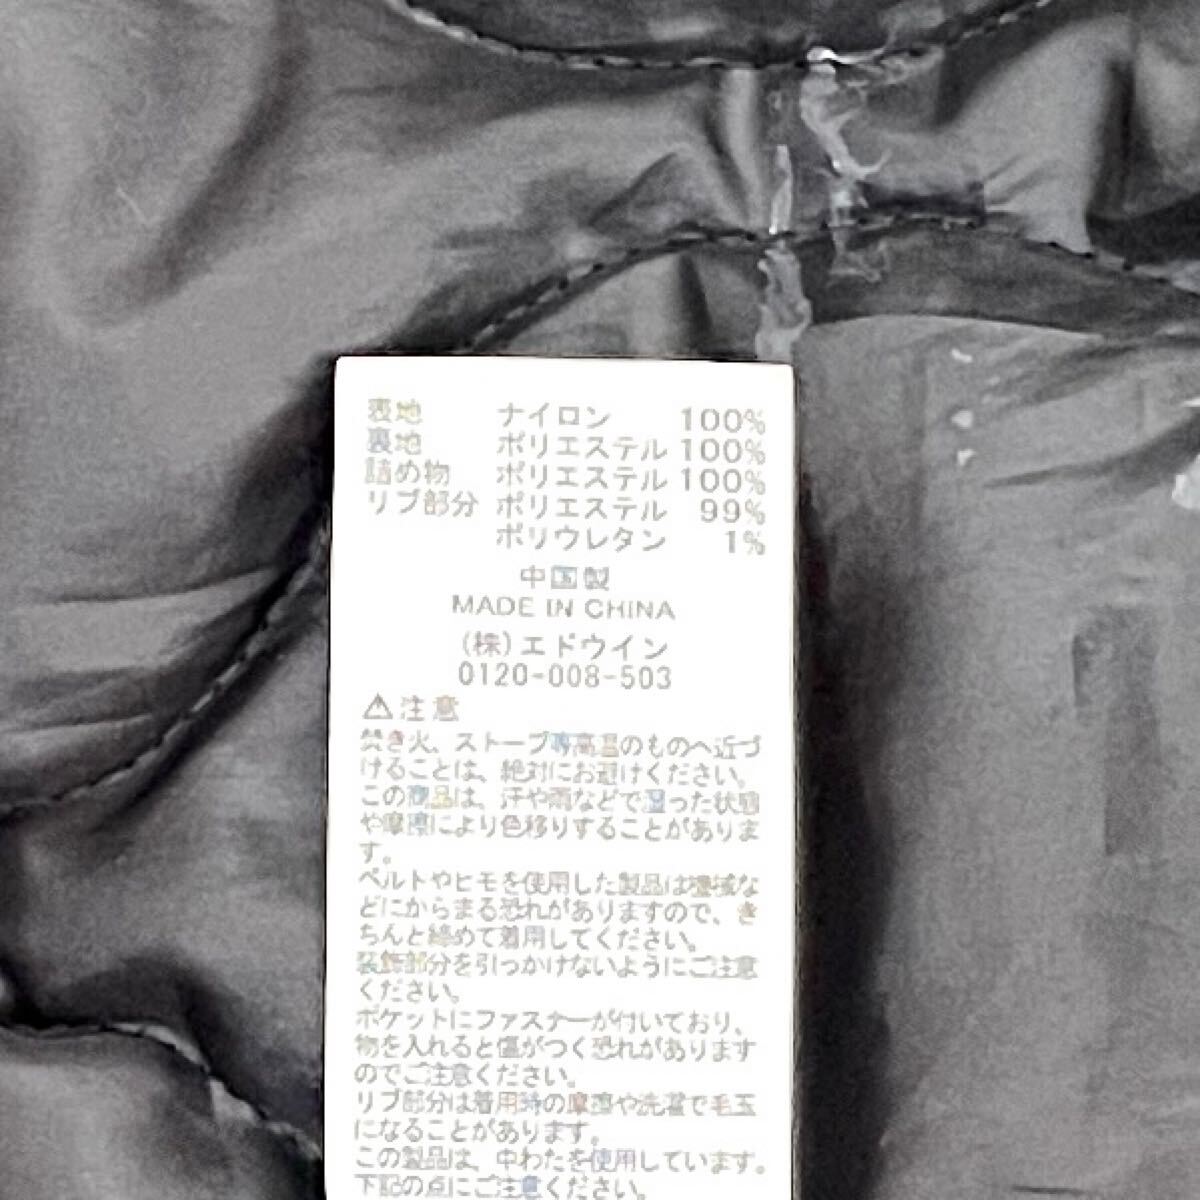 表地 ナイロン 100%
裏地 ポリエステル 100%
詰め物 ポリエステル 100%
リブ部分 ポリエステル 99%
ポリウレタン 1%
中国製
MADE IN CHINA
(株)エドウイン
0120-008-503
⚠注意
焚き火、ストーブ等高温のものへ近づ
けることは、絶対にお避けください。
この商品は、汗や雨などで湿った状態
や摩擦により色移りすることがありま
す。
ベルトやヒモを使用した製品は機械な
どにからまる恐れがありますので、き
ちんと締めて着用してください。
装飾部分を引っかけないようにご注意
ください。
ポケットにファスナーが付いており、
物を入れると傷がつく恐れがあります
のでご注意ください。
リブ部分は着用時の摩擦や洗濯で毛玉
になることがあります。
この製品は、中わたを使用しています。
下記の点にご注意ください。